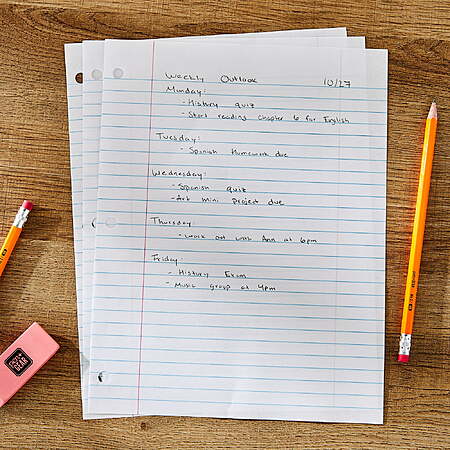 Weekly Outlook 10/27
Monday:
- History quiz
- Start reading Chapter 6 for English
Tuesday:
- Spanish Homework due
Wednesday:
- Spanish quiz
- Art mini project due
Thursday
- Work out with Ann at 6pm
Friday:
- History Exam
- Music group at 4pm
PEN+
GEAR